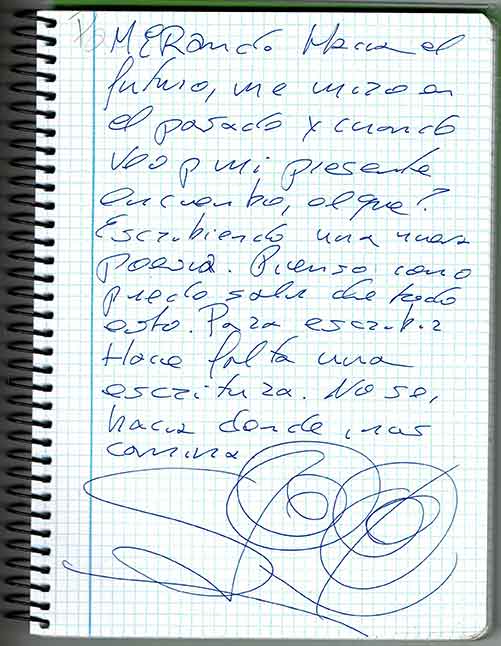 MERando Hacia el
futuro, me miro en
el pasado y cuando
veo mi presente
encuentro,
Escribiendo una nueva
poesía. Pienso como
puedo salir de todo
esto. Para escribir
Hace falta una
escritura. No se,
hacia donde, mas
camina